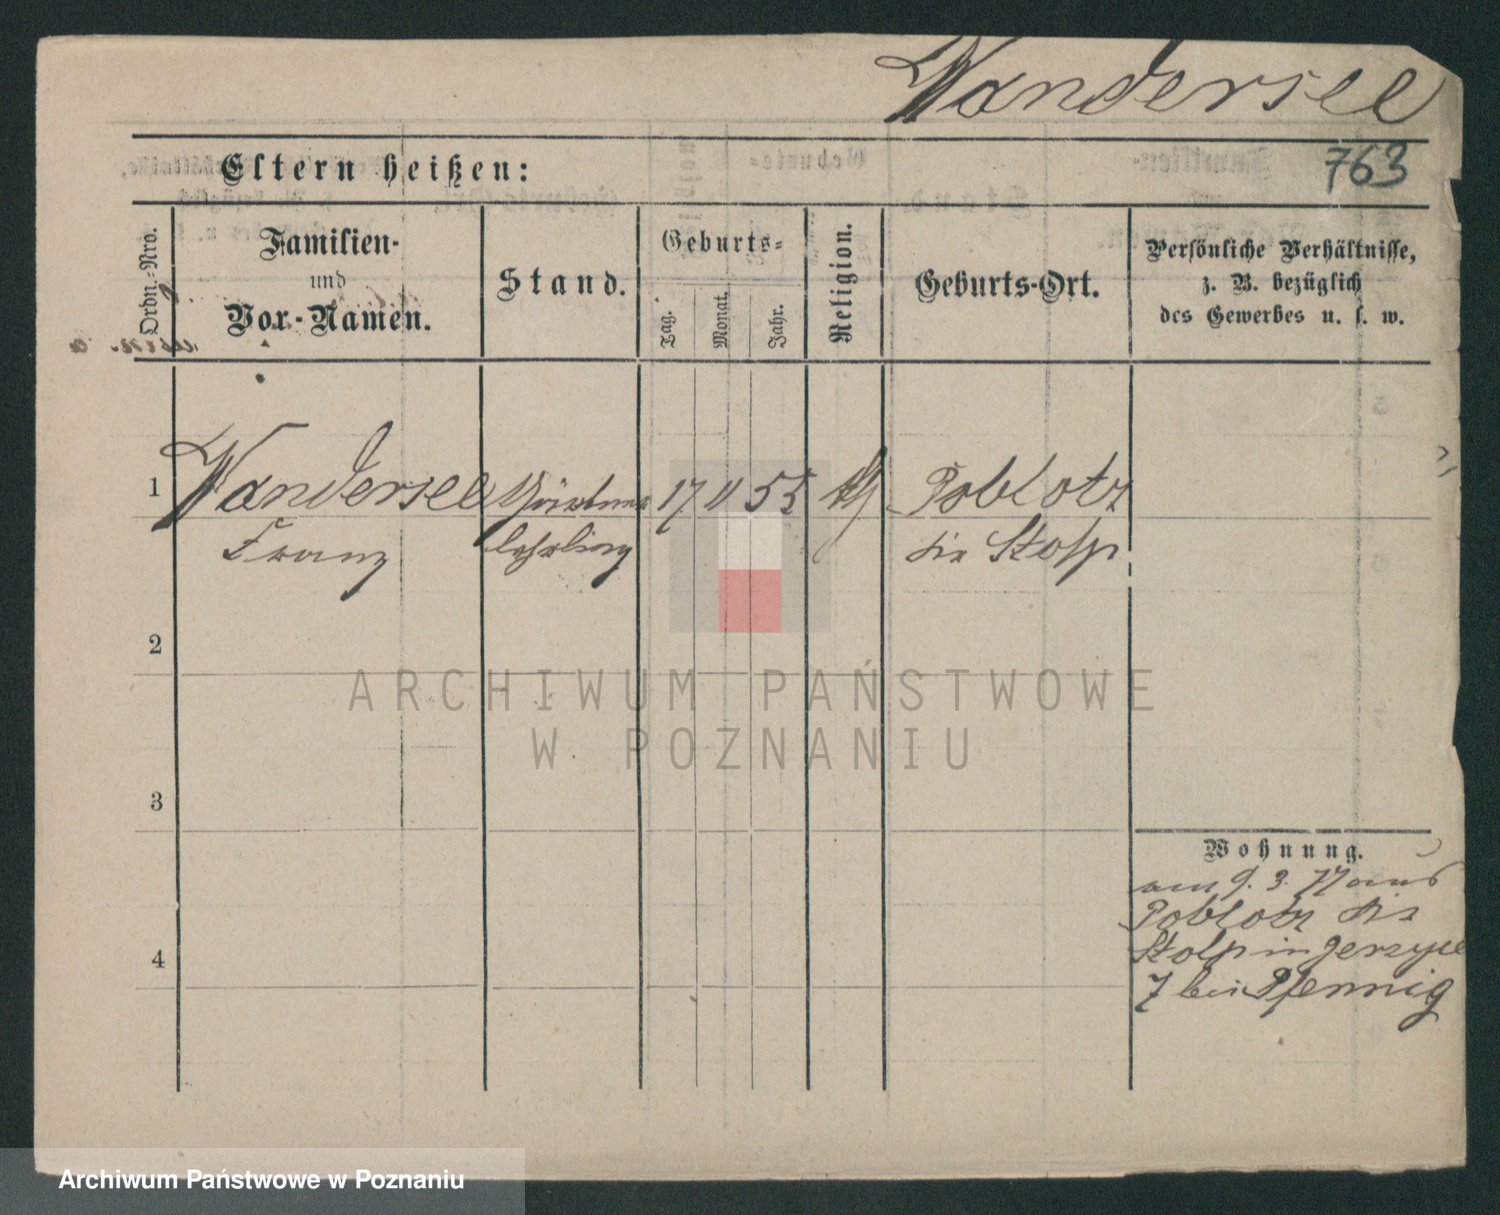 Wandersee
763
Eltern heißen:
Ordn.-Nro.
Familien-
und
Vor-Namen.
Stand.
Geburts-
Tag.
Monat.
Jahr.
Religion.
Geburts-Ort.
Persönliche Verhältnisse,
z. B. bezüglich
des Gewerbes u. s. w.
1 Wandersee 17 11 55 Poblotz
Franz lehrling Stolp
2
3
4
Wohnung.
am 9. 3. 77 aus
Poblotz
Stolp in Jerzyce
7 bei Pfennig
ARCHIWUM PAŃSTWOWE
W POZNANIU
Archiwum Państwowe w Poznaniu